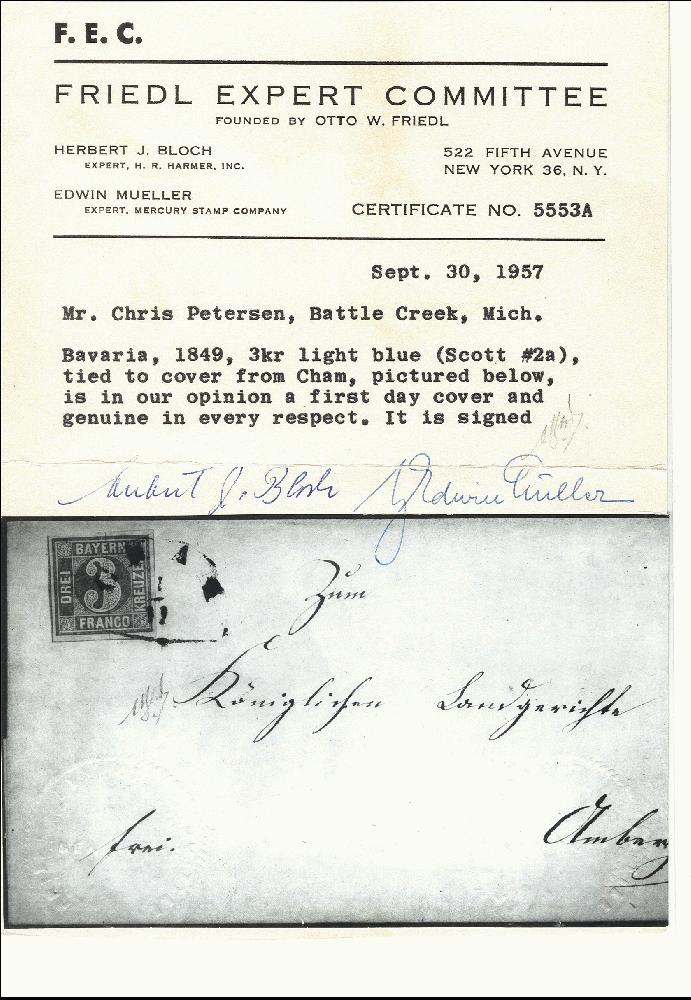 F. E. C.
FRIEDL EXPERT COMMITTEE
FOUNDED BY OTTO W. FRIEDL
HERBERT J. BLOCH
EXPERT, H. R. HARMER, INC.
522 FIFTH AVENUE
NEW YORK 36, N. Y.
EDWIN MUELLER
EXPERT, MERCURY STAMP COMPANY
CERTIFICATE NO. 5553A
Sept. 30, 1957
Mr. Chris Petersen, Battle Creek, Mich.
Bavaria, 1849, 3kr light blue (Scott #2a),
tied to cover from Cham, pictured below,
is in our opinion a first day cover and
genuine in every respect. It is signed
Herbert J. Bloch Edwin Müller
BAYERN
DREI 3 KREUZER
FRANCO
Zum
Königlichen Landgerichte
frei.
Amberg